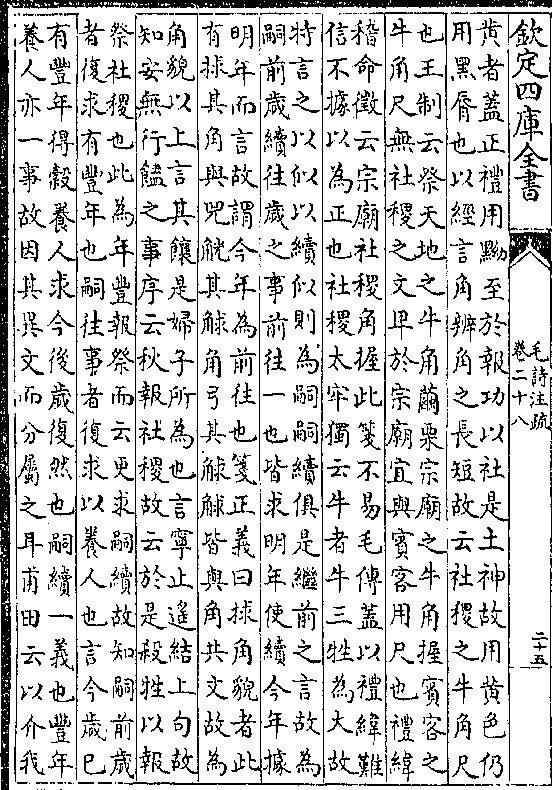 欽定四庫全書
毛詩注疏
卷二十八
二十五
黄者蓋正禮用黝至於報功以社是土神故用黄色仍
用黑脣也以經言角辨角之長短故云社稷之牛角尺
也王制云祭天地之牛角繭栗宗廟之牛角握賓客之
牛角尺無社稷之文卑於宗廟宜與賓客用尺也禮緯
稽命徵云宗廟社稷角握此箋不易毛傳蓋以禮緯難
信不據以為正也社稷太牢獨云牛者牛三牲為大故
特言之以似以續似則為嗣嗣續俱是繼前之言故為
嗣前歲續往歲之事前往一也皆求明年使續今年據
明年而言故謂今年為前往也箋正義曰捄角貌者此
有捄其角與兕觥其觩角弓其觩皆與角共文故為
角貌以上言其饟是婦子所為也言寧止遥結上句故
知安無行饁之事序云秋報社稷故云於是殺牲以報
祭社稷也此為年豐報祭而云更求嗣續故知嗣前歲
者復求有豐年也嗣往事者復求以養人也言今歲已
有豐年得穀養人求今後歲復然也嗣續一義也豐年
養人亦一事故因其異文而分屬之耳甫田云以介我